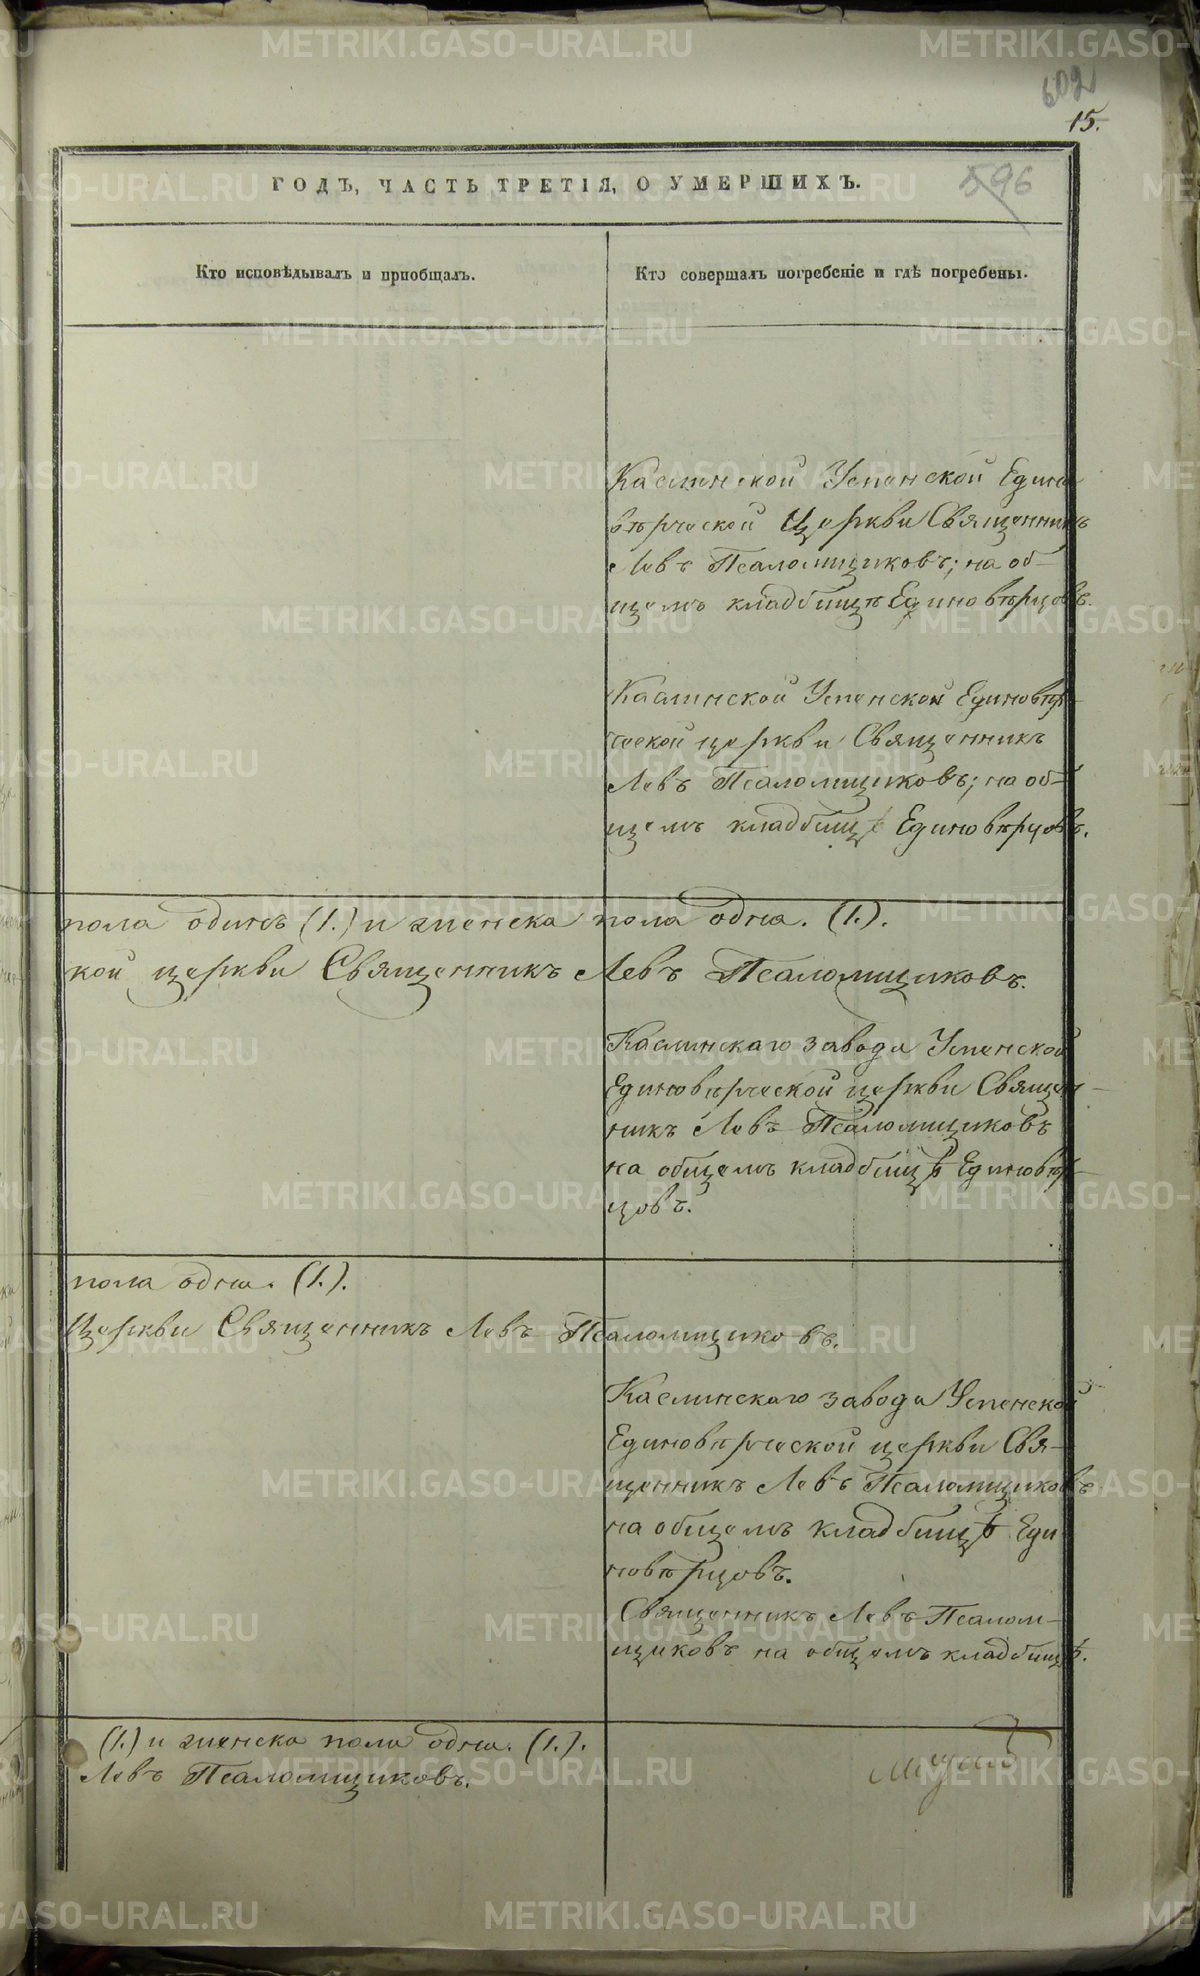 602
15.
596
ГОДЪ, ЧАСТЬ ТРЕТІЯ, О УМЕРШИХЪ.
Кто исповѣдывалъ и пріобщалъ.
Кто совершалъ погребеніе и гдѣ погребены.
Каслинской Успенской Едино
вѣрческой Церкви Священникъ
Левъ Псаломщиковъ; на об-
щемъ кладбищѣ Единовѣрцовъ.
Каслинской Успенской Единовѣр-
ческой церкви Священникъ
Левъ Псаломщиковъ; на об-
щемъ кладбищѣ Единовѣрцовъ.
пола одинъ (1.) и женска пола одна. (1.).
кой церкви Священникъ Левъ Псаломщиковъ.
Каслинскаго завода Успенской
Единовѣрческой церкви Священ-
никъ Левъ Псаломщиковъ
на общемъ кладбищѣ Единовѣр-
цовъ.
пола одна. (1.).
Церкви Священникъ Левъ Псаломщиковъ.
Каслинскаго завода Успенской
Единовѣрческой церкви Свя-
щенникъ Левъ Псаломщиковъ
на общемъ кладбищѣ Еди
новѣрцовъ.
Священникъ Левъ Псалом-
щиковъ на общемъ кладбищѣ.
(1.) и женска пола одна. (1.).
Левъ Псаломщиковъ.
METRIKI.GASO-URAL.RU